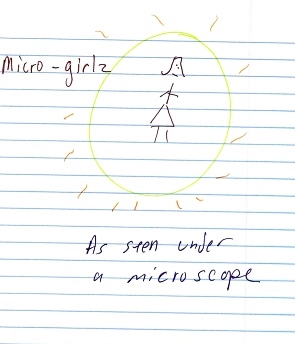 Micro-girlz
As seen under
a microscope